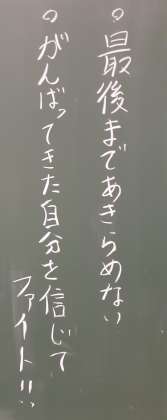 ○最後まであきらめない
○がんばってきた自分を信じて
ファイト!!